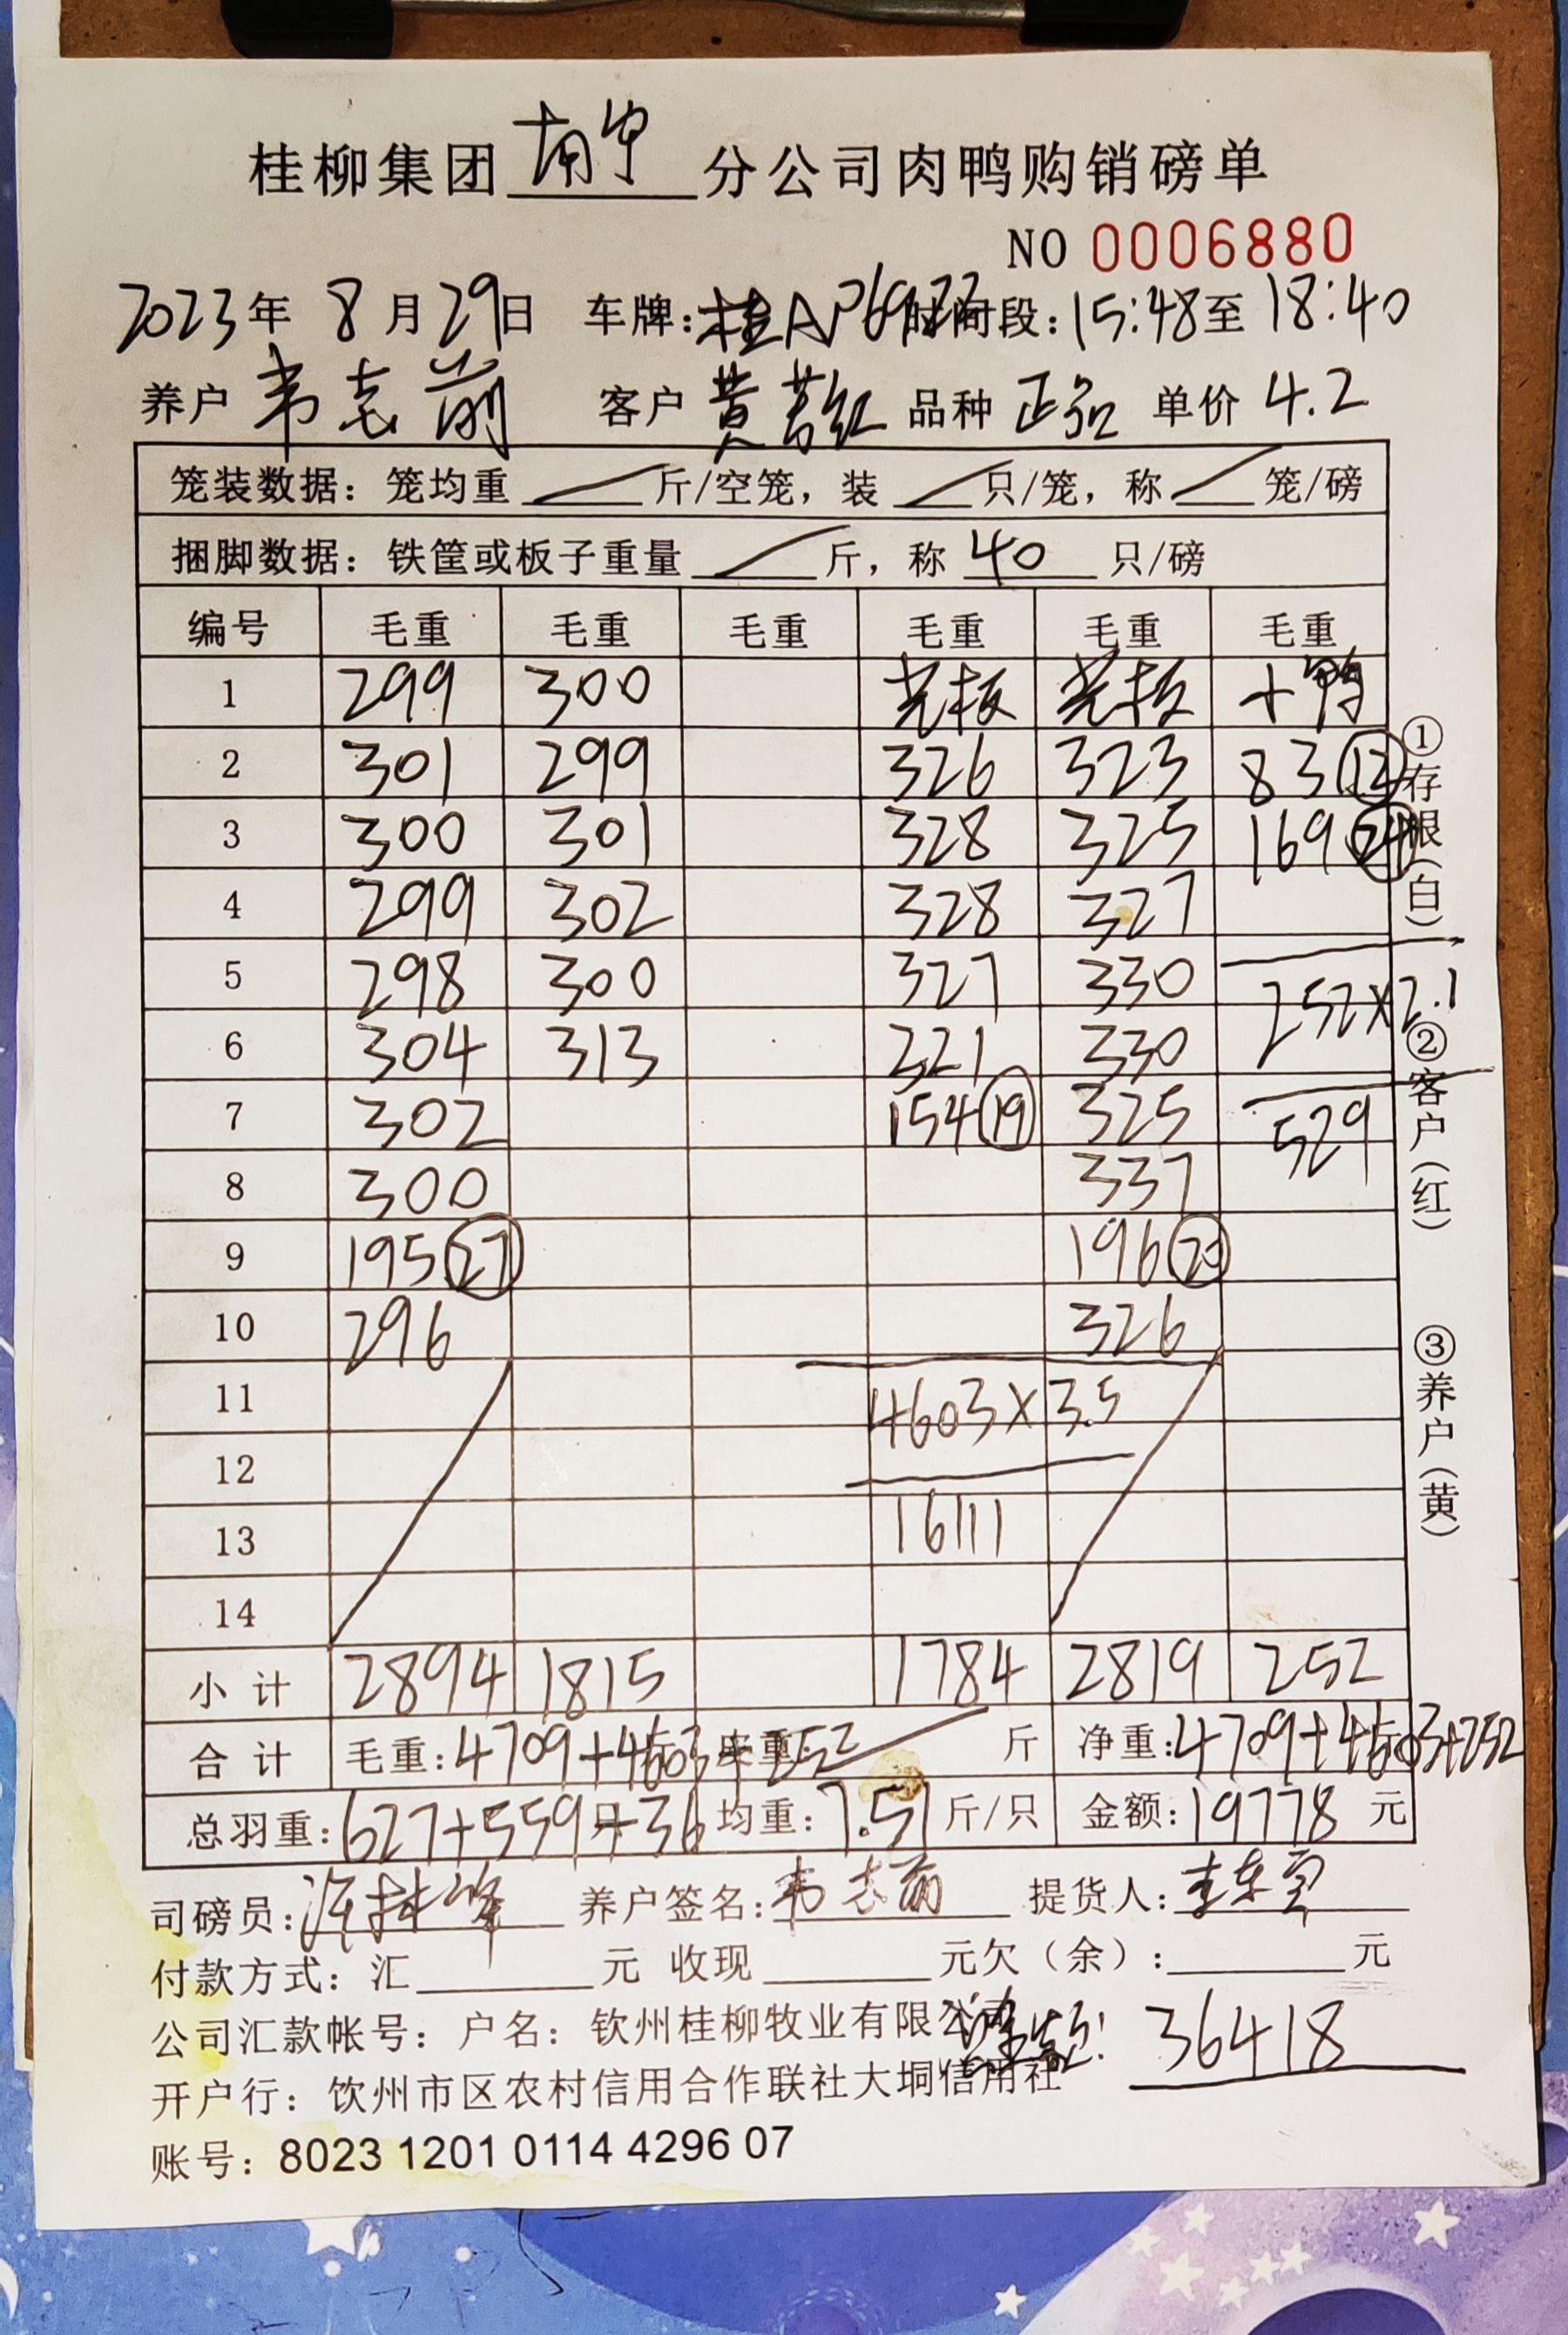 桂柳集团 南宁 分公司肉鸭购销磅单
NO 0006880
2023年 8月29日 车牌:桂A 时间段:15:48至18:40
养户 韦志前 客户 黄 红 品种 正品 单价 4.2
笼装数据: 笼均重 斤/空笼, 装 只/笼, 称 笼/磅
捆脚数据: 铁筐或板子重量 斤, 称 40 只/磅
编号 毛重 毛重 毛重 毛重 毛重 毛重
1 299 300 光板 光板 十鸭
2 301 299 326 323 83
3 300 301 328 325 169
4 299 302 328 327
5 298 300 327 330 252×2.1
6 304 313 321 330
7 302 154⑲ 325 529
8 300 337
9 195㉗ 196
10 296 326
11 4603×3.5
12
13 16111
14
小计 2894 1815 1784 2819 252
合计 毛重:4709+4603+252 皮重: 斤 净重:4709+4603+252
总羽重:627+559+36 均重:7.51斤/只 金额:19778元
司磅员: 养户签名:韦志前 提货人:
付款方式: 汇 元 收现 元欠(余): 元
公司汇款帐号: 户名: 钦州桂柳牧业有限公司 36418
开户行: 饮州市区农村信用合作联社大垌信用社
账号: 8023 1201 0114 4296 07
①存根(白)
②客户(红)
③养户(黄)